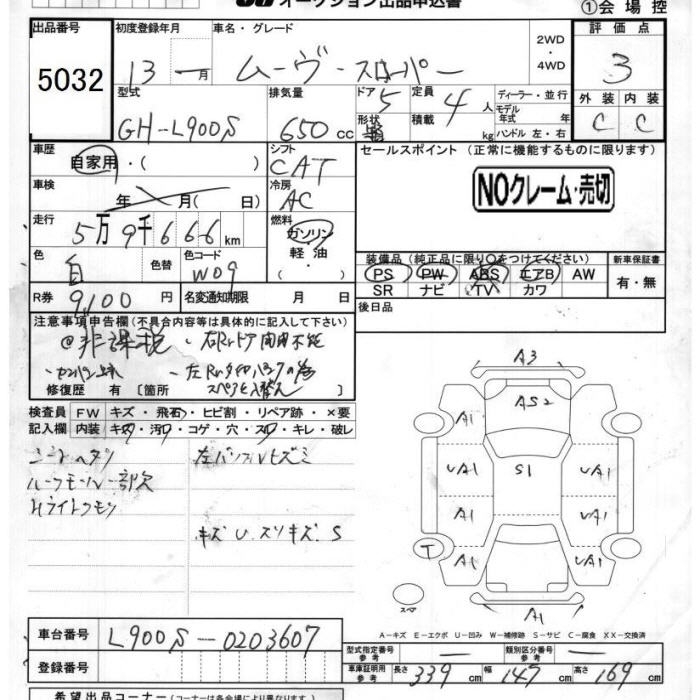 オークション出品申込書
①会場控
出品番号
5032
初度登録年月
13 - 月
車名・グレード
ムーヴ・スローパー
2WD
・
4WD
評価点
3
型式
GH-L900S
排気量
650 cc
ドア 5
形状
定員
積載
4 人
kg
ディーラー・並行
モデル
年式 年
ハンドル 左・右
外装 内装
C C
車歴
自家用・( )
シフト
CAT
セールスポイント (正常に機能するものに限ります)
NOクレーム・売切
車検
年 月( 日)
冷房
AC
走行
5万9千666 km
燃料
ガソリン
軽油
・( )
色
白
色替
色コード
W09
装備品(純正品に限り○をつけてください)
PS PW ABS エアB AW
SR ナビ TV カワ
新車保証書
有・無
R券
9100 円
名変通知期限 月 日
後日品
注意事項申告欄(不具合内容等は具体的に記入して下さい)
@非課税 ・右Rrドア開閉不能
修復歴 有 [箇所
検査員 FW キズ・飛石・ヒビ割・リペア跡・×要
記入欄 内装 キズ・汚レ・コゲ・穴・スレ・キレ・破レ
シートヘタリ
ルーフモール一部欠
Hライトクモリ
キズ U.スリキズ S
A3
AS2
A1
UA1 S1 UA1
A1 UA1
T
A1 UA1
スペア
A1
A-キズ E-エクボ U-凹み W-補修跡 S-サビ C-腐食 XX-交換済
車台番号
L900S-0203607
登録番号
型式指定番号
参考
類別区分番号
参考
車庫証明用
参考
長さ 339 cm 幅 147 cm 高さ 169 cm
希望出品コーナー(コーナーは各会場により異なります)